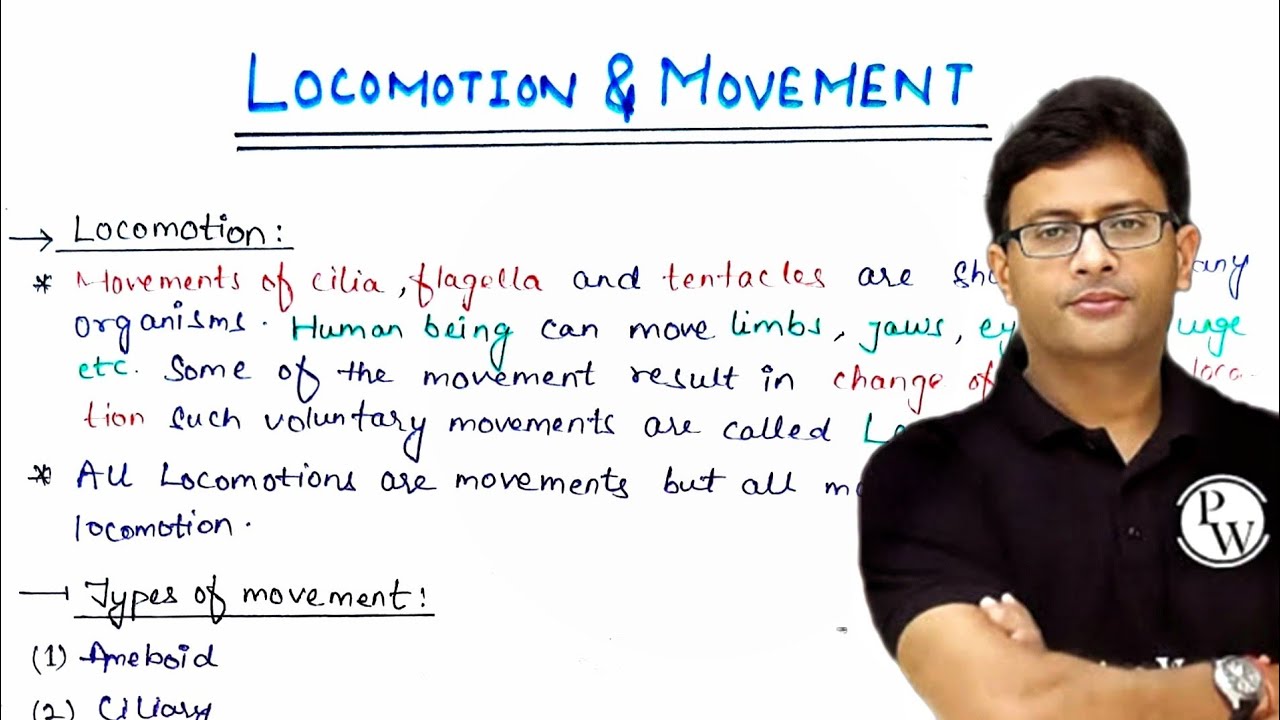 LOCOMOTION & MOVEMENT
→ Locomotion:
* Movements of cilia, flagella and tentacles are any
organisms. Human being can move limbs, jaws,
etc. Some of the movement result in change of loca-
tion such voluntary movements are called
* All Locomotions are movements but all
locomotion.
Types of movement:
(1) Ameboid
(2) Ciliary
PW